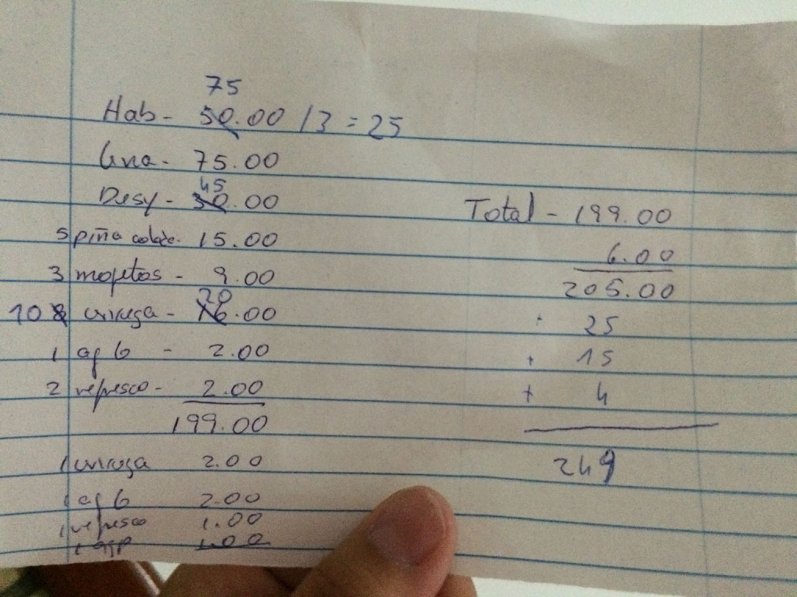 75
Hab - 50.00 /3 = 25
Cena - 75.00
45
Desy - 30.00
5 piña colada - 15.00
3 mojitos - 9.00
20
10 8 - 16.00
1 ag G - 2.00
2 refresco - 2.00
199.00
1 2.00
1 ag G 2.00
1 refresco 1.00
1 agp 1.00
Total - 199.00
6.00
205.00
+ 25
+ 15
+ 4
249